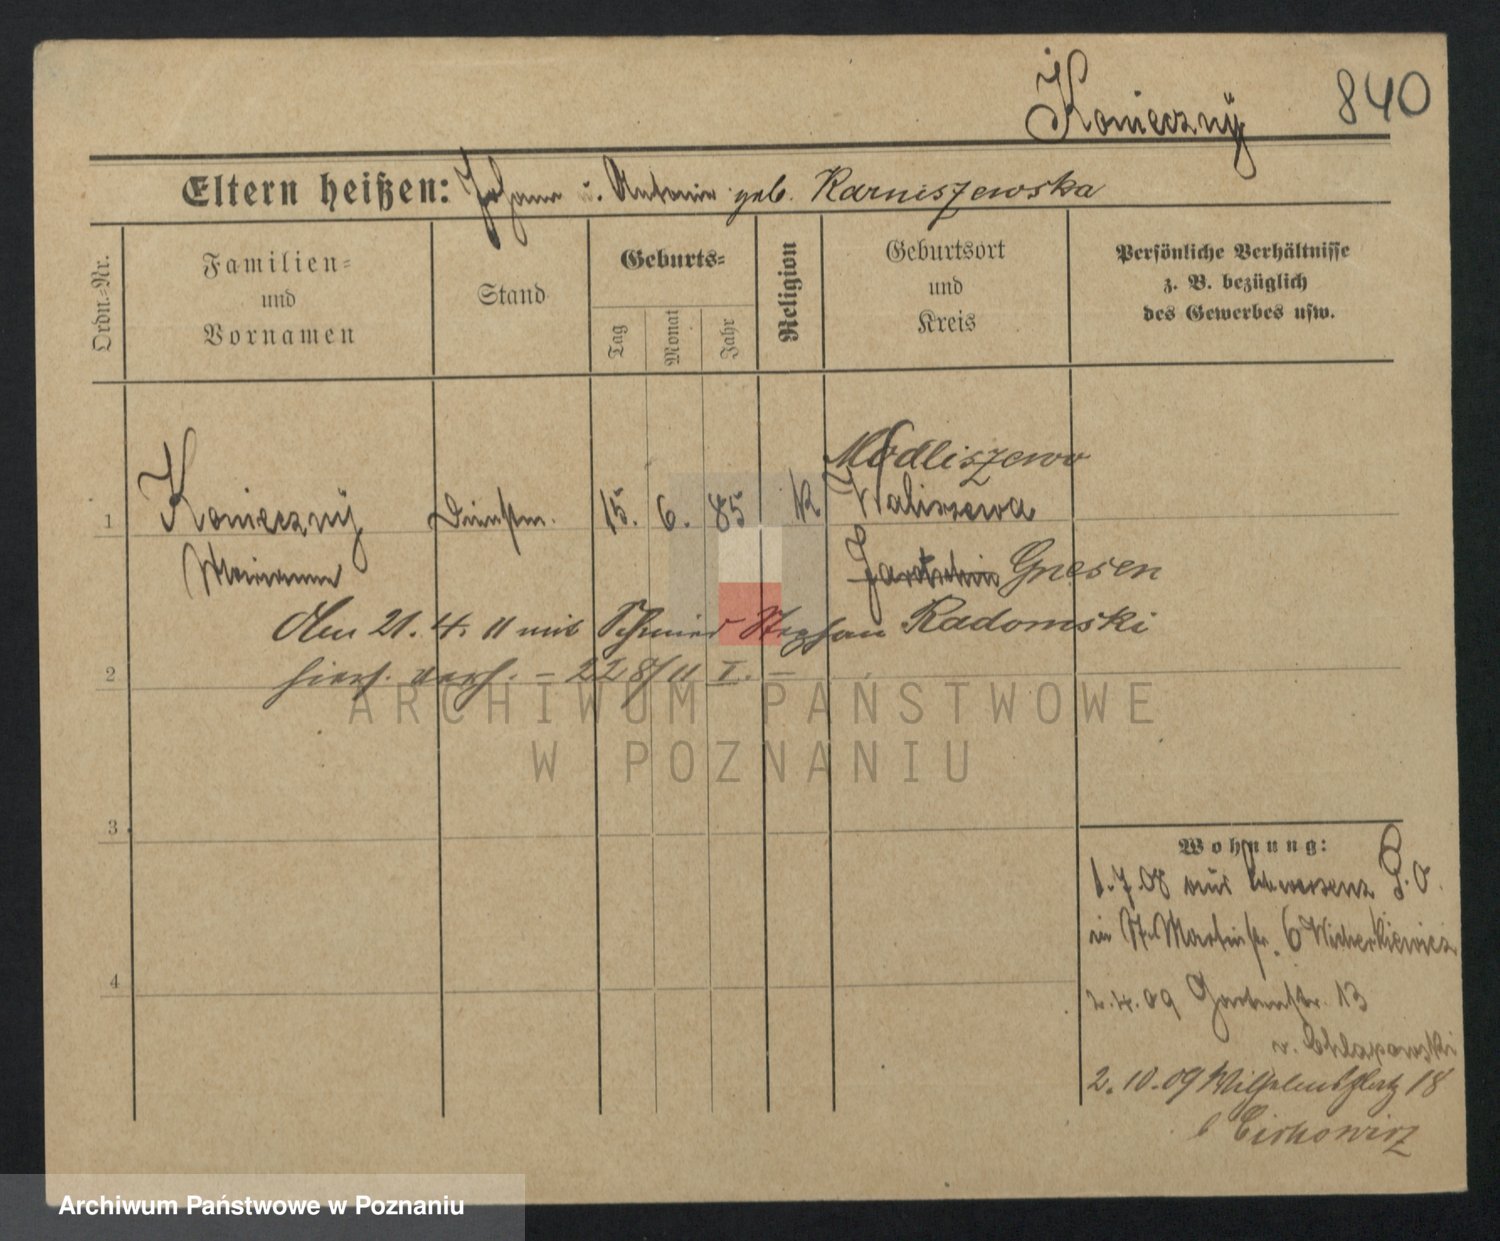 Koniecznÿ 840
Eltern heißen: Johann u. Antonie geb. Karniszewska
Ordn.-Nr.
Familien-
und
Vornamen
Stand
Geburts-
Tag
Monat
Jahr
Religion
Geburtsort
und
Kreis
Persönliche Verhältnisse
z. B. bezüglich
des Gewerbes usw.
Modliszewo
1 Koniecznÿ Dienstm. 15. 6. 85 K Waliszewa
Marianna Jarotschin Gnesen
Am 21. 4. 11 mit Schmied Stephan Radomski
2 hier verh. - 22 8/11 I. -
ARCHIWUM PAŃSTWOWE
W POZNANIU
3
Wohnung:
1.7.08 aus Schwersenz P. O.
in St. Martinstr. 6 Wicherkiewicz
4
2.4.09 Gartenstr. 13
v. Chlapowski
2.10.09 Wilhelmsplatz 18
b
Archiwum Państwowe w Poznaniu